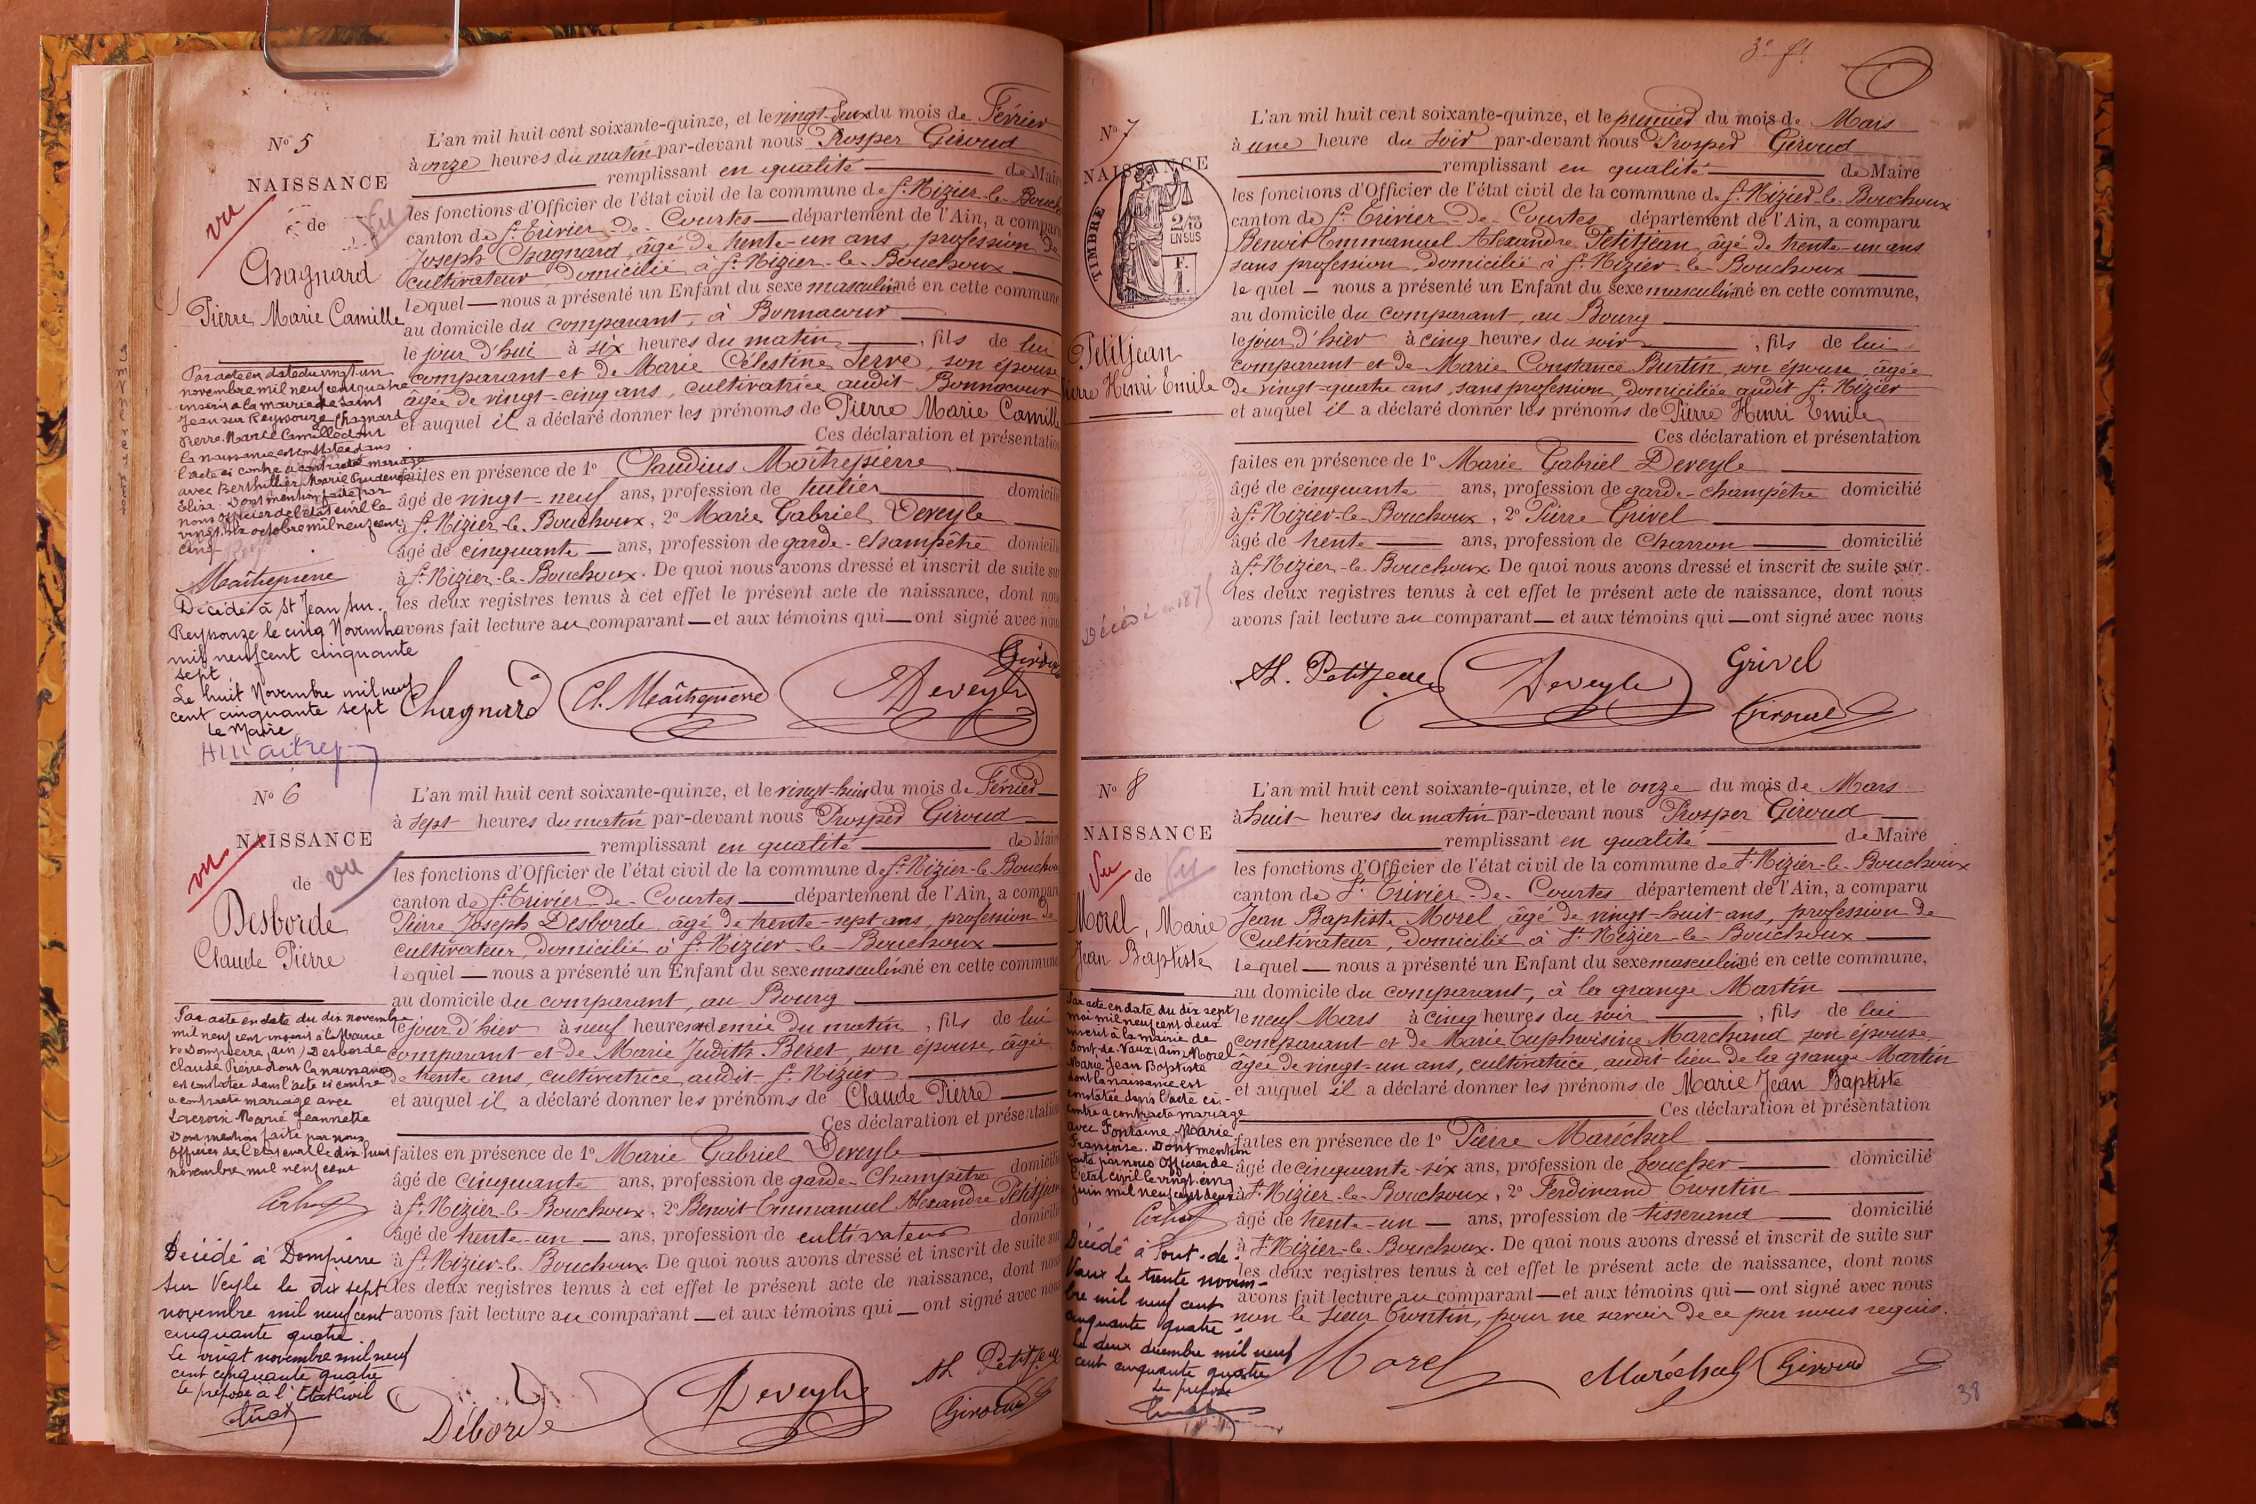 N° 5
NAISSANCE
de
vu
Vu
Chagnard
Pierre Marie Camille
Par acte en date du vingt un
novembre mil neuf cent quatre
inscrit à la mairie de Saint
Jean sur Reyssouze Chagnard
Pierre Marie Camille dont
la naissance est constatée dans
l'acte ci contre a contracté mariage
avec Berthillier Marie Prudence
Elisa. Dont mention faite par
nous officier de l'état civil le
vingt six octobre mil neuf cent
cinq
Maîtrepierre
Décédé à St Jean sur
Reyssouze le cinq Novembre
mil neuf cent cinquante
sept
Le huit Novembre mil neuf
cent cinquante sept
Le Maire
L'an mil huit cent soixante-quinze, et le vingt-deux du mois de Février
à onze heures du matin par-devant nous Prosper Giroud
remplissant en qualité de Maire
les fonctions d'Officier de l'état civil de la commune de St Nizier-le-Bouchoux
canton de St Trivier-de-Courtes département de l'Ain, a comparu
Joseph Chagnard, âgé de trente-un ans, profession de
cultivateur, domicilié à St Nizier-le-Bouchoux
lequel nous a présenté un Enfant du sexe masculin né en cette commune
au domicile du comparant, à Bonnacour
le jour d'hui à six heures du matin, fils de lui
comparant et de Marie Célestine Serve, son épouse
âgée de vingt-cinq ans, cultivatrice audit Bonnacour
et auquel il a déclaré donner les prénoms de Pierre Marie Camille
Ces déclaration et présentation
faites en présence de 1° Claudius Maîtrepierre
âgé de vingt-neuf ans, profession de tuilier domicilié
à St Nizier-le-Bouchoux, 2° Marie Gabriel Deveyle
âgé de cinquante ans, profession de garde-champêtre domicilié
à St Nizier-le-Bouchoux. De quoi nous avons dressé et inscrit de suite sur
les deux registres tenus à cet effet le présent acte de naissance, dont nous
avons fait lecture au comparant et aux témoins qui ont signé avec nous
Giroud
Chagnard Cl. Maîtrepierre Deveyle
N° 6
NAISSANCE
de
vu
vu
Desborde
Claude Pierre
Par acte en date du dix novembre
mil neuf cent inscrit à la Mairie
de Dompierre (Ain) Desborde
Claude Pierre dont la naissance
est constatée dans l'acte ci contre
a contracté mariage avec
Lacroix Marie Jeannette
Dont mention faite par nous
officier de l'état civil le dix huit
novembre mil neuf cent
Décédé à Dompierre
sur Veyle le dix sept
novembre mil neuf cent
cinquante quatre.
Le vingt novembre mil neuf
cent cinquante quatre
Le préposé à l'Etat Civil
L'an mil huit cent soixante-quinze, et le vingt-huit du mois de Février
à sept heures du matin par-devant nous Prosper Giroud
remplissant en qualité de Maire
les fonctions d'Officier de l'état civil de la commune de St Nizier-le-Bouchoux
canton de St Trivier-de-Courtes département de l'Ain, a comparu
Pierre Joseph Desborde, âgé de trente-sept ans, profession de
cultivateur, domicilié à St Nizier-le-Bouchoux
lequel nous a présenté un Enfant du sexe masculin né en cette commune
au domicile du comparant, au Bourg
le jour d'hier à neuf heures et demie du matin, fils de lui
comparant et de Marie Judith Beret, son épouse, âgée
de trente ans, cultivatrice audit St Nizier
et auquel il a déclaré donner les prénoms de Claude Pierre
Ces déclaration et présentation
faites en présence de 1° Marie Gabriel Deveyle
âgé de cinquante ans, profession de garde-champêtre domicilié
à St Nizier-le-Bouchoux, 2° Benoit Emmanuel Alexandre Petitjean
âgé de trente-un ans, profession de cultivateur domicilié
à St Nizier-le-Bouchoux. De quoi nous avons dressé et inscrit de suite sur
les deux registres tenus à cet effet le présent acte de naissance, dont nous
avons fait lecture au comparant et aux témoins qui ont signé avec nous
Déborde Deveyle Al. Petitjean
Giroud
3e ft
N° 7
NAISSANCE
TIMBRE
2/10
EN SUS
F.
1.
Petitjean
Pierre Henri Emile
Décédé en 1875
L'an mil huit cent soixante-quinze, et le premier du mois de Mars
à une heure du soir par-devant nous Prosper Giroud
remplissant en qualité de Maire
les fonctions d'Officier de l'état civil de la commune de St Nizier-le-Bouchoux
canton de St Trivier-de-Courtes département de l'Ain, a comparu
Benoit Emmanuel Alexandre Petitjean, âgé de trente-un ans
sans profession, domicilié à St Nizier-le-Bouchoux
lequel nous a présenté un Enfant du sexe masculin né en cette commune,
au domicile du comparant, au Bourg
le jour d'hier à cinq heures du soir, fils de lui
comparant et de Marie Constance Burtin, son épouse, âgée
de vingt-quatre ans, sans profession, domiciliée audit St Nizier
et auquel il a déclaré donner les prénoms de Pierre Henri Emile
Ces déclaration et présentation
faites en présence de 1° Marie Gabriel Deveyle
âgé de cinquante ans, profession de garde-champêtre domicilié
à St Nizier-le-Bouchoux, 2° Pierre Grivel
âgé de trente ans, profession de charron domicilié
à St Nizier-le-Bouchoux. De quoi nous avons dressé et inscrit de suite sur
les deux registres tenus à cet effet le présent acte de naissance, dont nous
avons fait lecture au comparant et aux témoins qui ont signé avec nous
Al. Petitjean Deveyle Grivel
Giroud
N° 8
NAISSANCE
de
Vu
Vu
Morel, Marie
Jean Baptiste
Par acte en date du dix sept
mai mil neuf cent deux
inscrit à la mairie de
Pont-de-Vaux (Ain) Morel
Marie Jean Baptiste
dont la naissance est
constatée dans l'acte ci-
contre a contracté mariage
avec Fontaine Marie
Françoise. Dont mention
faite par nous Officier de
l'état civil le vingt cinq
juin mil neuf cent deux
Décédé à Pont-de-
Vaux le trente novem-
bre mil neuf cent
cinquante quatre.
Le deux décembre mil neuf
cent cinquante quatre
Le préposé
L'an mil huit cent soixante-quinze, et le onze du mois de Mars
à huit heures du matin par-devant nous Prosper Giroud
remplissant en qualité de Maire
les fonctions d'Officier de l'état civil de la commune de St Nizier-le-Bouchoux
canton de St Trivier-de-Courtes département de l'Ain, a comparu
Jean Baptiste Morel, âgé de vingt-huit ans, profession de
Cultivateur, domicilié à St Nizier-le-Bouchoux
lequel nous a présenté un Enfant du sexe masculin né en cette commune,
au domicile du comparant, à la grange Martin
le neuf Mars à cinq heures du soir, fils de lui
comparant et de Marie Euphroisine Marchand son épouse
âgée de vingt-un ans, cultivatrice, audit lieu de la grange Martin
et auquel il a déclaré donner les prénoms de Marie Jean Baptiste
Ces déclaration et présentation
faites en présence de 1° Pierre Maréchal
âgé de cinquante-six ans, profession de boucher domicilié
à St Nizier-le-Bouchoux, 2° Ferdinand Trontin
âgé de trente-un ans, profession de tisserand domicilié
à St Nizier-le-Bouchoux. De quoi nous avons dressé et inscrit de suite sur
les deux registres tenus à cet effet le présent acte de naissance, dont nous
avons fait lecture au comparant et aux témoins qui ont signé avec nous
non le sieur Trontin, pour ne savoir de ce par nous requis.
Morel Maréchal Giroud
38